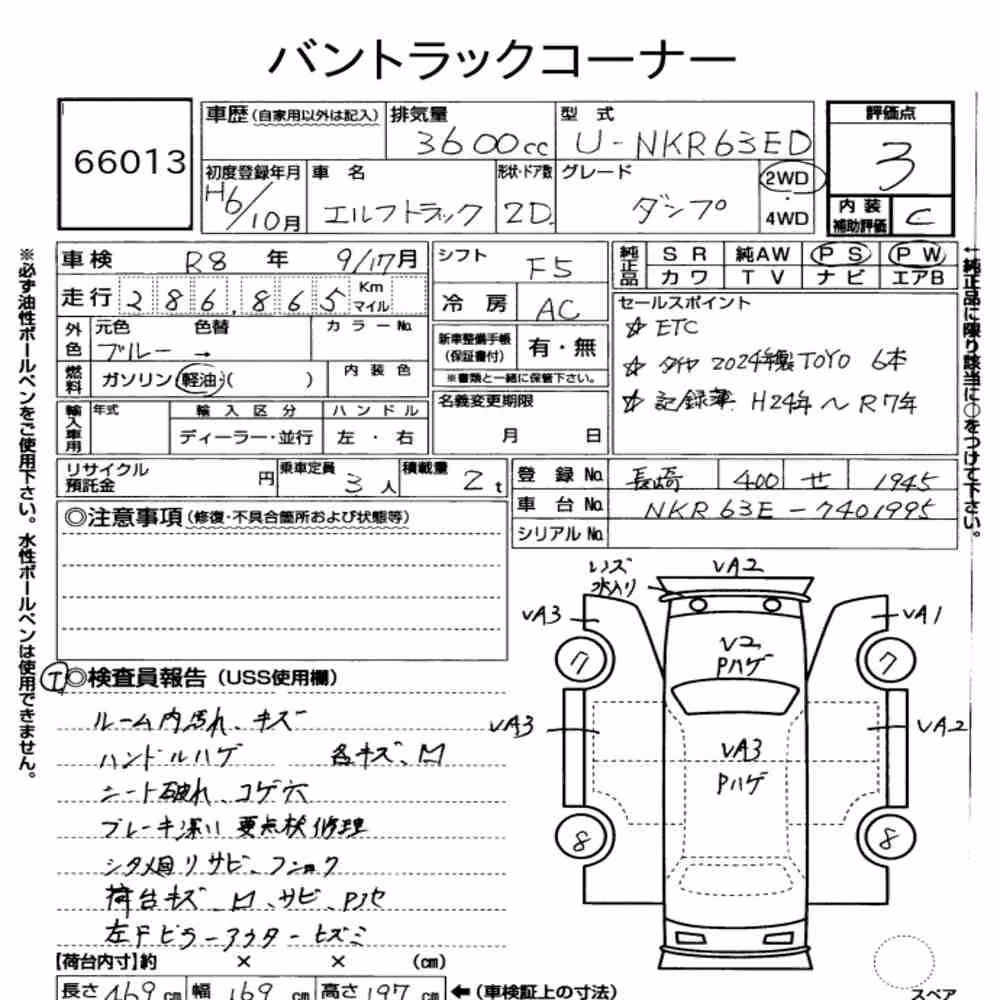 バントラックコーナー
66013
車歴 (自家用以外は記入) 排気量 3600cc 型式 U-NKR63ED 評価点 3
初度登録年月 H6/10月 車名 エルフトラック 形状・ドア数 2D グレード ダンプ 2WD・4WD 内装補助評価 C
※必ず油性ボールペンをご使用下さい。水性ボールペンは使用できません。
←純正品に限り該当に○をつけて下さい。
車検 R8年 9/17月
走行 286,865 Km マイル
外色 元色 色替 カラーNo.
ブルー →
燃料 ガソリン・軽油・( ) 内装色
輸入車用 年式 輸入区分 ハンドル
ディーラー・並行 左・右
シフト F5
冷房 AC
新車整備手帳 (保証書付) 有・無
※書類と一緒に保管下さい。
名義変更期限
月 日
純正品 SR 純AW PS PW
カワ TV ナビ エアB
セールスポイント
☆ ETC
☆ タイヤ 2024年製 TOYO 6本
☆ 記録簿 H24年～R7年
リサイクル預託金 円 乗車定員 3人 積載量 2t
登録No. 長崎 400 せ 1945
車台No. NKR63E-7401995
シリアルNo.
◎注意事項 (修復・不具合箇所および状態等)
レンズ水入り
VA2
VA3
VA1
V2
Pハゲ
7
7
VA3
VA2
VA3
Pハゲ
8
8
I ◎検査員報告 (USS使用欄)
ルーム内汚れ、キズ
ハンドルハゲ 各キズ、凹
シート破れ、コゲ穴
ブレーキ深い 要点検修理
シタ廻リサビ、フショク
荷台キズ、凹、サビ、Pハゲ
左Fピラーアウターヒズミ
【荷台内寸】約 × × (cm)
長さ 469cm 幅 169cm 高さ 197cm ←(車検証上の寸法)
スペア